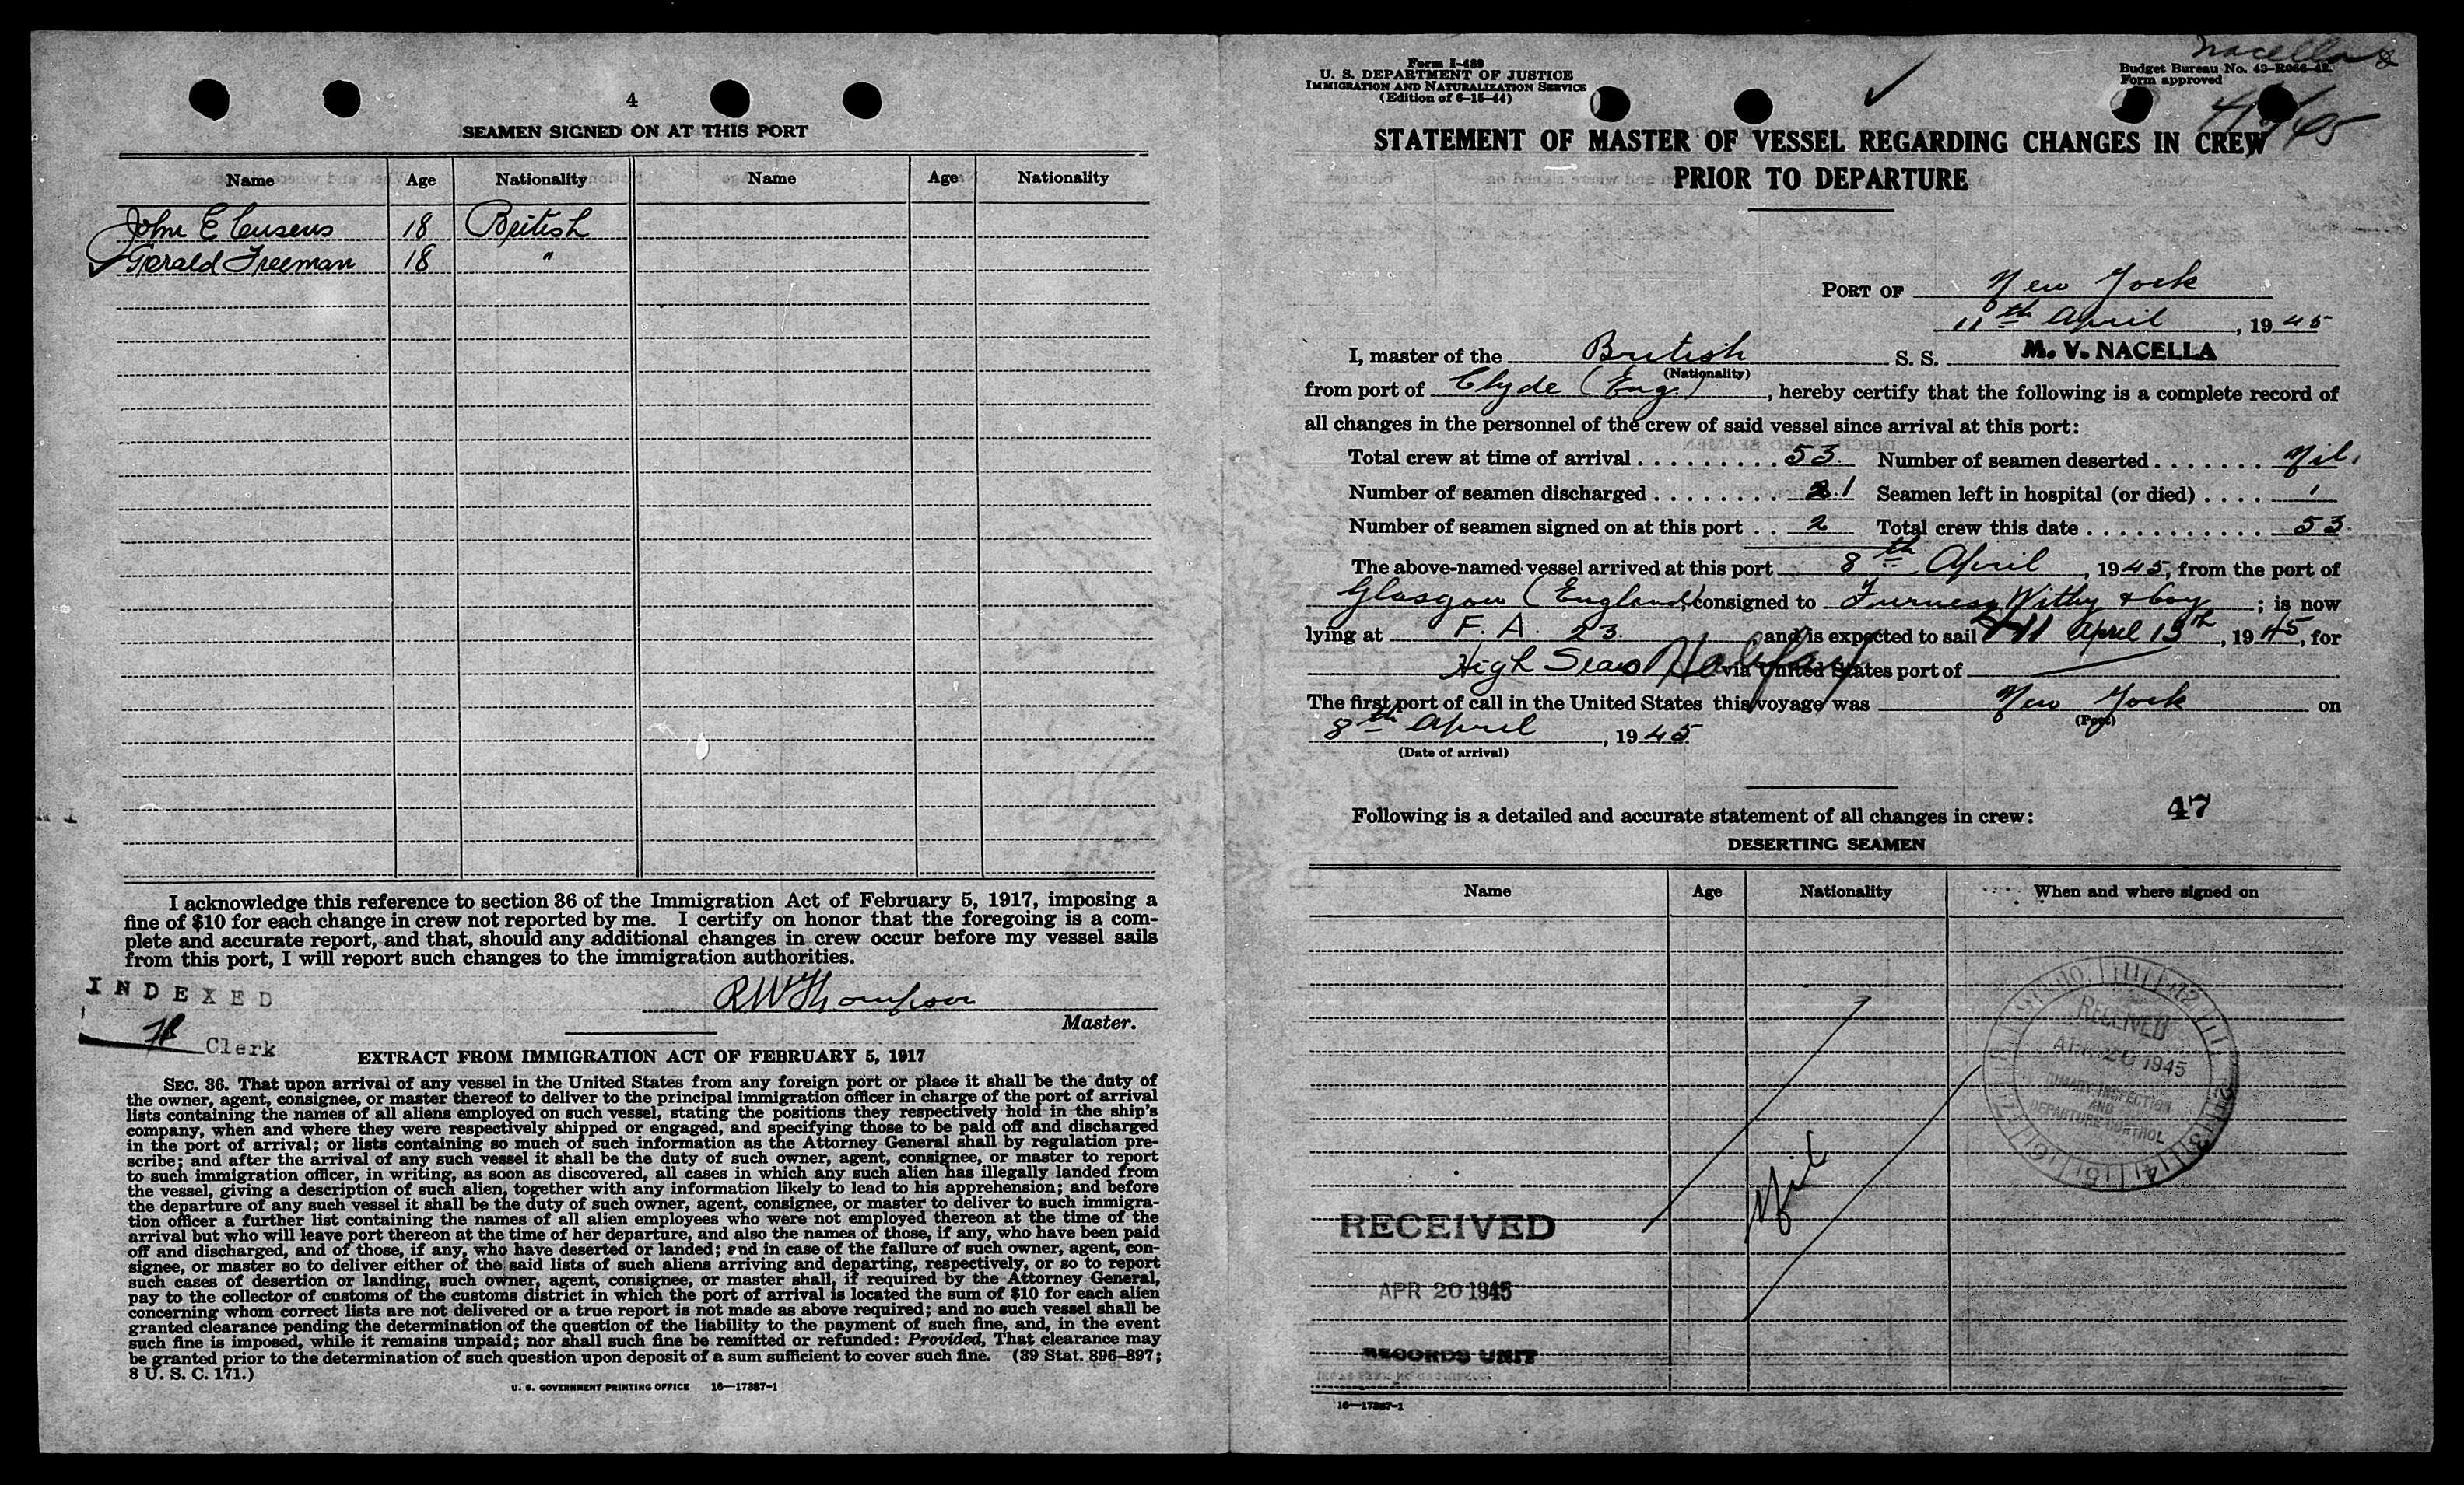 4
SEAMEN SIGNED ON AT THIS PORT
Name Age Nationality Name Age Nationality
John E Cusens 18 British
Gerald Freeman 18 "
I acknowledge this reference to section 36 of the Immigration Act of February 5, 1917, imposing a
fine of $10 for each change in crew not reported by me. I certify on honor that the foregoing is a com-
plete and accurate report, and that, should any additional changes in crew occur before my vessel sails
from this port, I will report such changes to the immigration authorities.
INDEXED
RW Thompson
Master.
Clerk
EXTRACT FROM IMMIGRATION ACT OF FEBRUARY 5, 1917
SEC. 36. That upon arrival of any vessel in the United States from any foreign port or place it shall be the duty of
the owner, agent, consignee, or master thereof to deliver to the principal immigration officer in charge of the port of arrival
lists containing the names of all aliens employed on such vessel, stating the positions they respectively hold in the ship's
company, when and where they were respectively shipped or engaged, and specifying those to be paid off and discharged
in the port of arrival; or lists containing so much of such information as the Attorney General shall by regulation pre-
scribe; and after the arrival of any such vessel it shall be the duty of such owner, agent, consignee, or master to report
to such immigration officer, in writing, as soon as discovered, all cases in which any such alien has illegally landed from
the vessel, giving a description of such alien, together with any information likely to lead to his apprehension; and before
the departure of any such vessel it shall be the duty of such owner, agent, consignee, or master to deliver to such immigra-
tion officer a further list containing the names of all alien employees who were not employed thereon at the time of the
arrival but who will leave port thereon at the time of her departure, and also the names of those, if any, who have been paid
off and discharged, and of those, if any, who have deserted or landed; and in case of the failure of such owner, agent, con-
signee, or master so to deliver either of the said lists of such aliens arriving and departing, respectively, or so to report
such cases of desertion or landing, such owner, agent, consignee, or master shall, if required by the Attorney General,
pay to the collector of customs of the customs district in which the port of arrival is located the sum of $10 for each alien
concerning whom correct lists are not delivered or a true report is not made as above required; and no such vessel shall be
granted clearance pending the determination of the question of the liability to the payment of such fine, and, in the event
such fine is imposed, while it remains unpaid; nor shall such fine be remitted or refunded: Provided, That clearance may
be granted prior to the determination of such question upon deposit of a sum sufficient to cover such fine. (39 Stat. 896–897;
8 U. S. C. 171.)
U. S. GOVERNMENT PRINTING OFFICE 16—17387-1
Nacella
Form I-489
U. S. DEPARTMENT OF JUSTICE
IMMIGRATION AND NATURALIZATION SERVICE
(Edition of 6-15-44)
Budget Bureau No. 43-R066-42.
Form approved
STATEMENT OF MASTER OF VESSEL REGARDING CHANGES IN CREW
PRIOR TO DEPARTURE
PORT OF New York
11th April, 1945
I, master of the British S. S. M. V. NACELLA
(Nationality)
from port of Clyde (Eng.), hereby certify that the following is a complete record of
all changes in the personnel of the crew of said vessel since arrival at this port:
Total crew at time of arrival . . . . . . . . . 53. Number of seamen deserted . . . . . . . Nil.
Number of seamen discharged . . . . . . . . 1 Seamen left in hospital (or died) . . . . 1
Number of seamen signed on at this port . . 2 Total crew this date . . . . . . . . . . . 53.
The above-named vessel arrived at this port 8th April, 1945, from the port of
Glasgow (England); consigned to Furness Withy & Coy; is now
lying at F. A. 23. and is expected to sail April 13th, 1945, for
High Seas Halifax via United States port of
The first port of call in the United States this voyage was New York on
(Port)
8th April, 1945
(Date of arrival)
Following is a detailed and accurate statement of all changes in crew: 47
DESERTING SEAMEN
Name Age Nationality When and where signed on
RECEIVED
APR 20 1945
PRIMARY INSPECTION
AND
DEPARTURE CONTROL
Nil
RECEIVED
APR 20 1945
RECORDS UNIT
16—17387-1